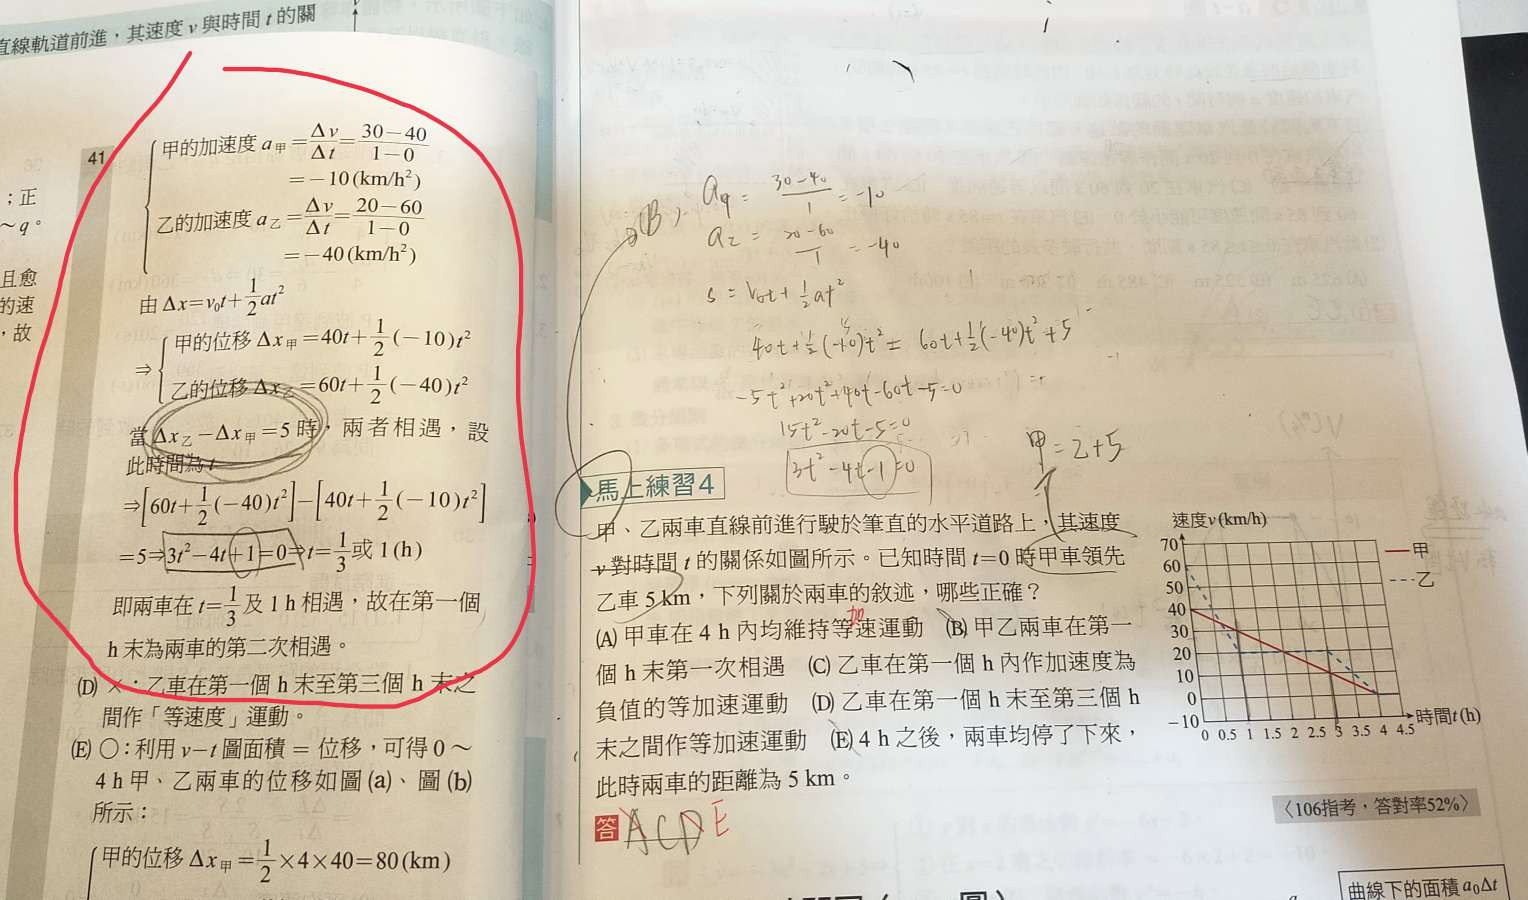 直線軌道前進，其速度 v 與時間 t 的關
；正
～q。
且愈
的速
，故
41
甲的加速度 a甲=Δv/Δt=30−40/1−0
=−10(km/h²)
乙的加速度 a乙=Δv/Δt=20−60/1−0
=−40(km/h²)
由 Δx=v₀t+1/2at²
⇒ 甲的位移 Δx甲=40t+1/2(−10)t²
乙的位移 Δx乙=60t+1/2(−40)t²
當 Δx乙−Δx甲=5 時，兩者相遇，設
此時間為 t
⇒[60t+1/2(−40)t²]−[40t+1/2(−10)t²]
=5⇒3t²−4t+1=0⇒t=1/3或 1(h)
即兩車在 t=1/3及 1 h 相遇，故在第一個
h 末為兩車的第二次相遇。
(D) ×：乙車在第一個 h 末至第三個 h 末之
間作「等速度」運動。
(E) ○：利用 v−t 圖面積 = 位移，可得 0～
4 h 甲、乙兩車的位移如圖(a)、圖(b)
所示：
甲的位移 Δx甲=1/2×4×40=80(km)
(B)
a甲 = 30−40/1 = −10
a乙 = 20−60/1 = −40
s = V₀t+1/2at²
40t+1/2(−10)t² = 60t+1/2(−40)t²+5
−5t²+20t²+40t−60t−5=0
15t²−20t−5=0
3t²−4t−1=0
甲=乙+5
馬上練習4
甲、乙兩車直線前進行駛於筆直的水平道路上，其速度
v 對時間 t 的關係如圖所示。已知時間 t=0 時甲車領先
乙車 5 km，下列關於兩車的敘述，哪些正確？
加
(A) 甲車在 4 h 內均維持等速運動　(B) 甲乙兩車在第一
個 h 末第一次相遇　(C) 乙車在第一個 h 內作加速度為
負值的等加速運動　(D) 乙車在第一個 h 末至第三個 h
末之間作等加速運動　(E) 4 h 之後，兩車均停了下來，
此時兩車的距離為 5 km。
速度v(km/h)
70
60
50
40
30
20
10
0
−10
甲
乙
0 0.5 1 1.5 2 2.5 3 3.5 4 4.5
時間t(h)
〈106指考，答對率52%〉
答 ACD E
曲線下的面積 a₀Δt